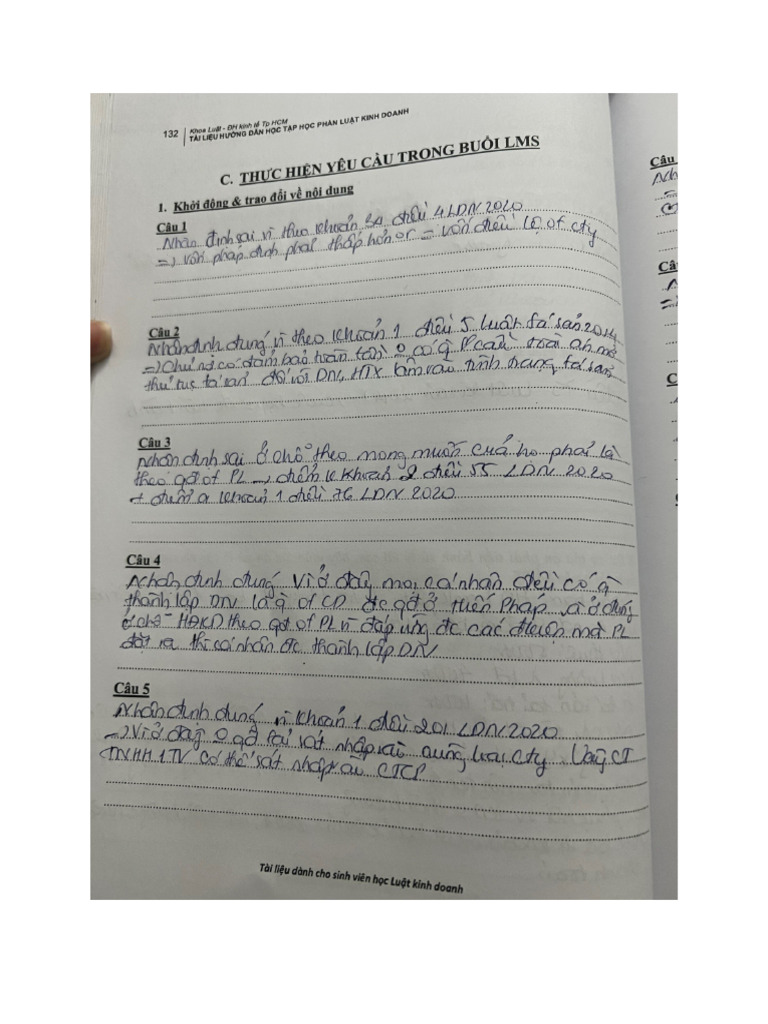 132 Khoa Luật - ĐH kinh tế Tp HCM
TÀI LIỆU HƯỚNG DẪN HỌC TẬP HỌC PHẦN LUẬT KINH DOANH
C. THỰC HIỆN YÊU CẦU TRONG BUỔI LMS
1. Khởi động & trao đổi về nội dung
Câu 1
Nhận định sai vì theo khoản 34 điều 4 LDN 2020
=> vốn pháp định phải thấp hơn or = vốn điều lệ of cty
Câu 2
Nhận định đúng vì theo khoản 1 điều 5 luật fá sản 2014
=> Chủ nợ có đảm bảo toàn
thủ tục fá sản đối với DN, HTX lâm vào tình trạng fá sản
Câu 3
Nhận định sai ở chỗ theo mong muốn của họ phải là
theo qđ of PL điểm k khoản 2 điều 55 LDN 2020
+ điểm a khoản 1 điều 76 LDN 2020
Câu 4
Nhận định đúng vì ở đây mọi cá nhân đều có q
thành lập DN là q of CD đc qđ ở Hiến Pháp và ở đúng
ở chỗ HĐKD theo qđ of PL đáp ứng đc các mà PL
đặt ra thì cá nhân đc thành lập DN
Câu 5
Nhận định đúng vì khoản 1 điều 201 LDN 2020
=> Vì ở đây 0 qđ fải sát nhập vào cùng loại cty Vậy CT
TNHH 1TV có thể sát nhập vào CTCP
Tài liệu dành cho sinh viên học Luật kinh doanh
Câu